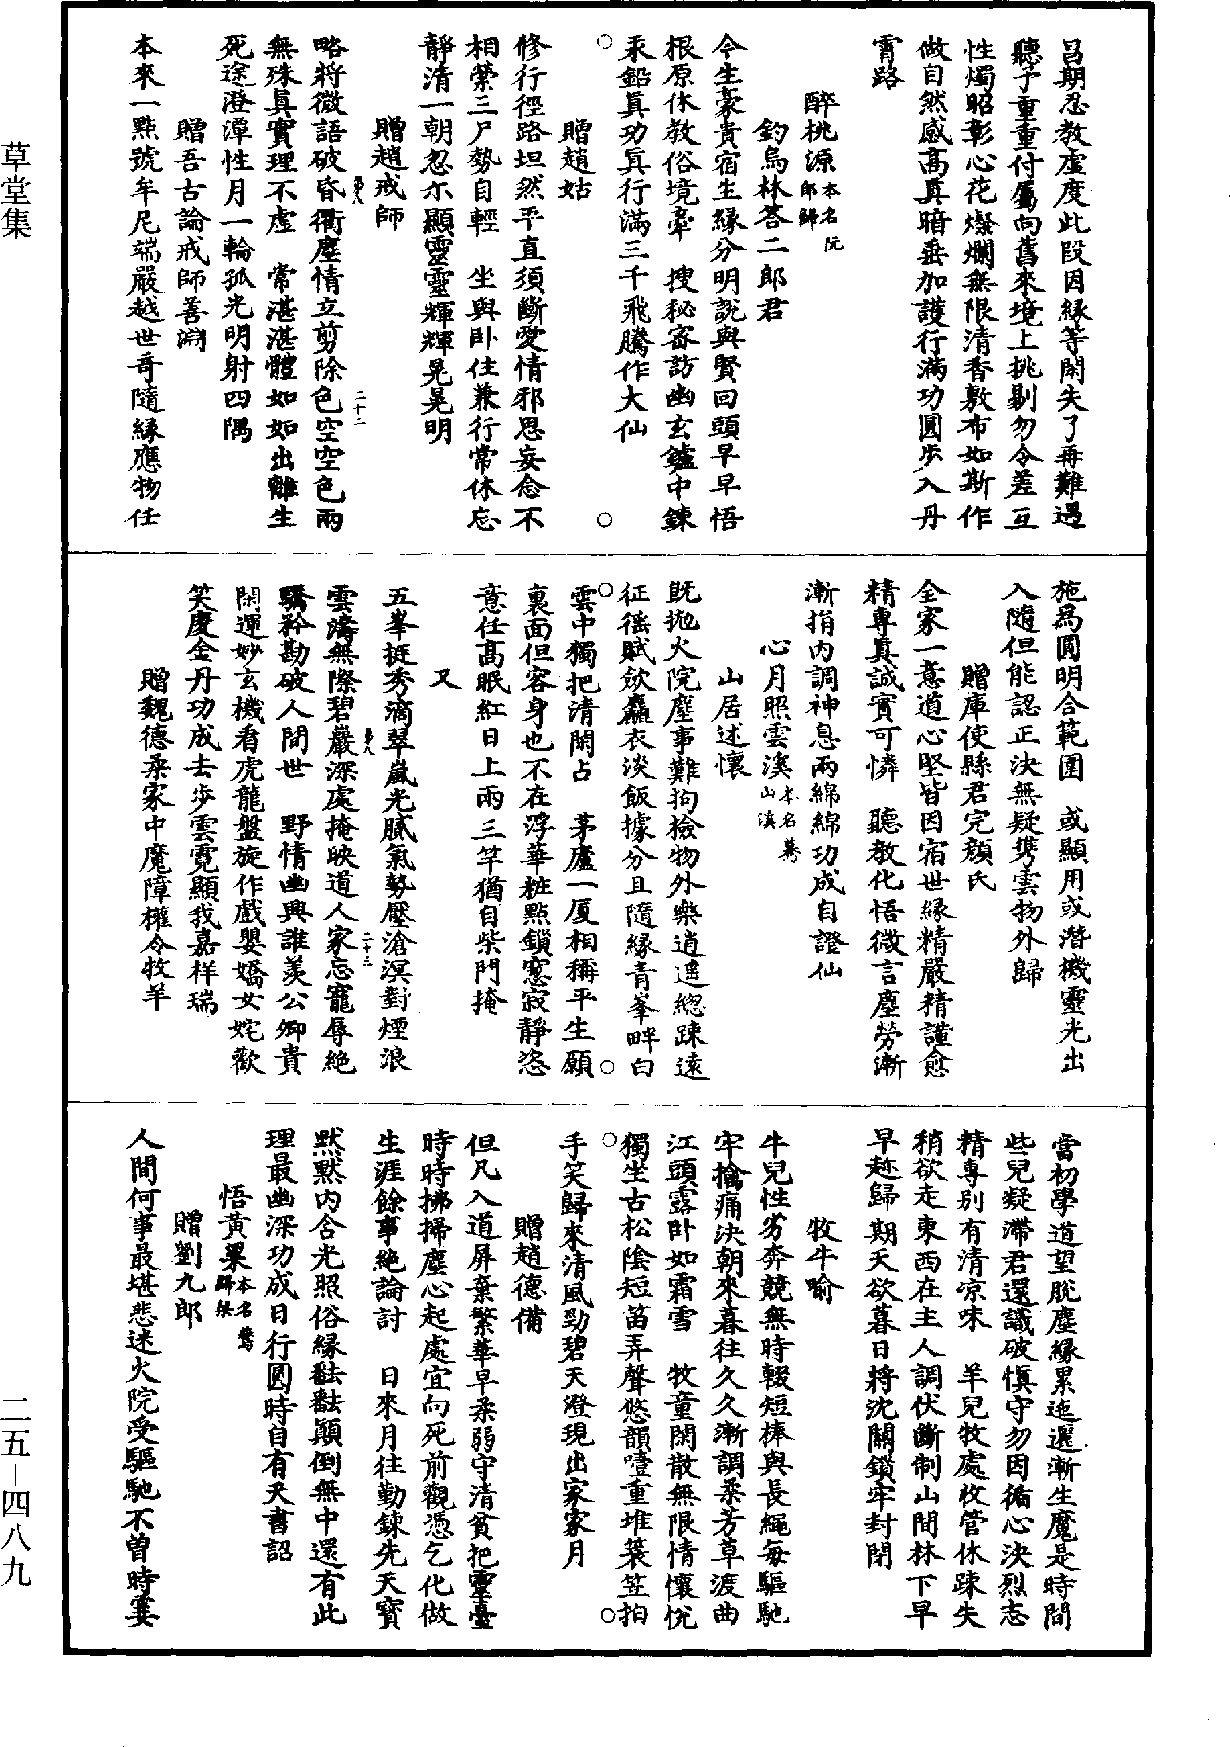 草堂集
呂期忍教虛度此段因緣等閑失了再難遇
聽予重重付屬向舊來境上挑剔勿令差互
性燭昭彰心花燦爛無限清香敷布如斯作
做自然感高真暗垂加護行滿功圓步入丹
霄路
醉桃源本名阮郎歸
釣烏林答二郎君
今生豪貴宿生緣分明說與賢回頭早早悟
根原休教俗境牽 搜秘審訪幽玄鑪中鍊
汞鉛真功真行滿三千飛騰作大仙
贈趙姑
修行徑路坦然平直須斷愛情邪思妄念不
相縈三尸勢自輕 坐與臥住兼行常休忘
靜清一朝忽尒顯靈靈輝輝晃晃明
贈趙戒師
略將微語破昏衢塵情立剪除色空空色兩
無殊真實理不虛 常湛湛體如如出離生
死途澄潭性月一輪孤光明射四隅
贈吾古論戒師善淵
本來一點號牟尼端嚴越世奇隨緣應物任
二十二
施爲圓明合範圍 或顯用或潛機靈光出
入隨但能認正決無疑携雲物外歸
贈庫使縣君完顏氏
全家一意道心堅皆因宿世緣精嚴精謹愈
精專真誠實可憐 聽教化悟微言塵勞漸
漸捐內調神息兩綿綿功成自證仙
心月照雲溪本名驀山溪
山居述懷
既拋火院塵事難拘撿物外樂逍遥總踈遠
征徭賦斂麤衣淡飯據分且隨緣青峯畔白
雲中獨把清閑占 茅廬一厦相稱平生願
裏面但容身也不在浮華粧點鎖窻寂靜恣
意任高眠紅日上兩三竿猶自柴門掩
又
五峯挺秀滴翠嵐光膩氣勢壓滄溟對煙浪
雲濤無際碧巖深處掩映道人家忘寵辱絕
驕矜勘破人間世 野情幽興誰羨公卿貴
閑運妙玄機看虎龍盤旋作戲嬰嬌女姹歡
笑慶金丹功成去步雲霓顯我嘉祥瑞
贈魏德柔家中魔障權令牧羊
二十三
當初學道望脫塵緣累迤邐漸生魔是時間
些兒疑滯君還識破愼守勿因循心決烈志
精專別有清凉味 羊兒牧處收管休踈失
稍欲走東西在主人調伏斷制山間林下早
早趂歸期天欲暮日將沈關鎖牢封閉
牧牛喻
牛兒性劣奔競無時輟短棒與長繩每驅馳
牢擒痛決朝來暮往久久漸調柔芳草渡曲
江頭露臥如霜雪 牧童閑散無限情懷悅
獨坐古松陰短笛弄聲悠韻噎重堆蓑笠拍
手笑歸來清風勁碧天澄現出家家月
贈趙德備
但凡入道屏棄繁華早柔弱守清貧把靈臺
時時拂掃塵心起處宜向死前觀憑乞化做
生涯餘事絕論討 日來月往勤鍊先天寶
默默內含光照俗緣翻翻顛倒無中還有此
理最幽深功成日行圓時自有天書詔
悟黃粱本名鶯歸梁
贈劉九郎
人間何事最堪悲迷火院受驅馳不曾時霎
二五－四八九